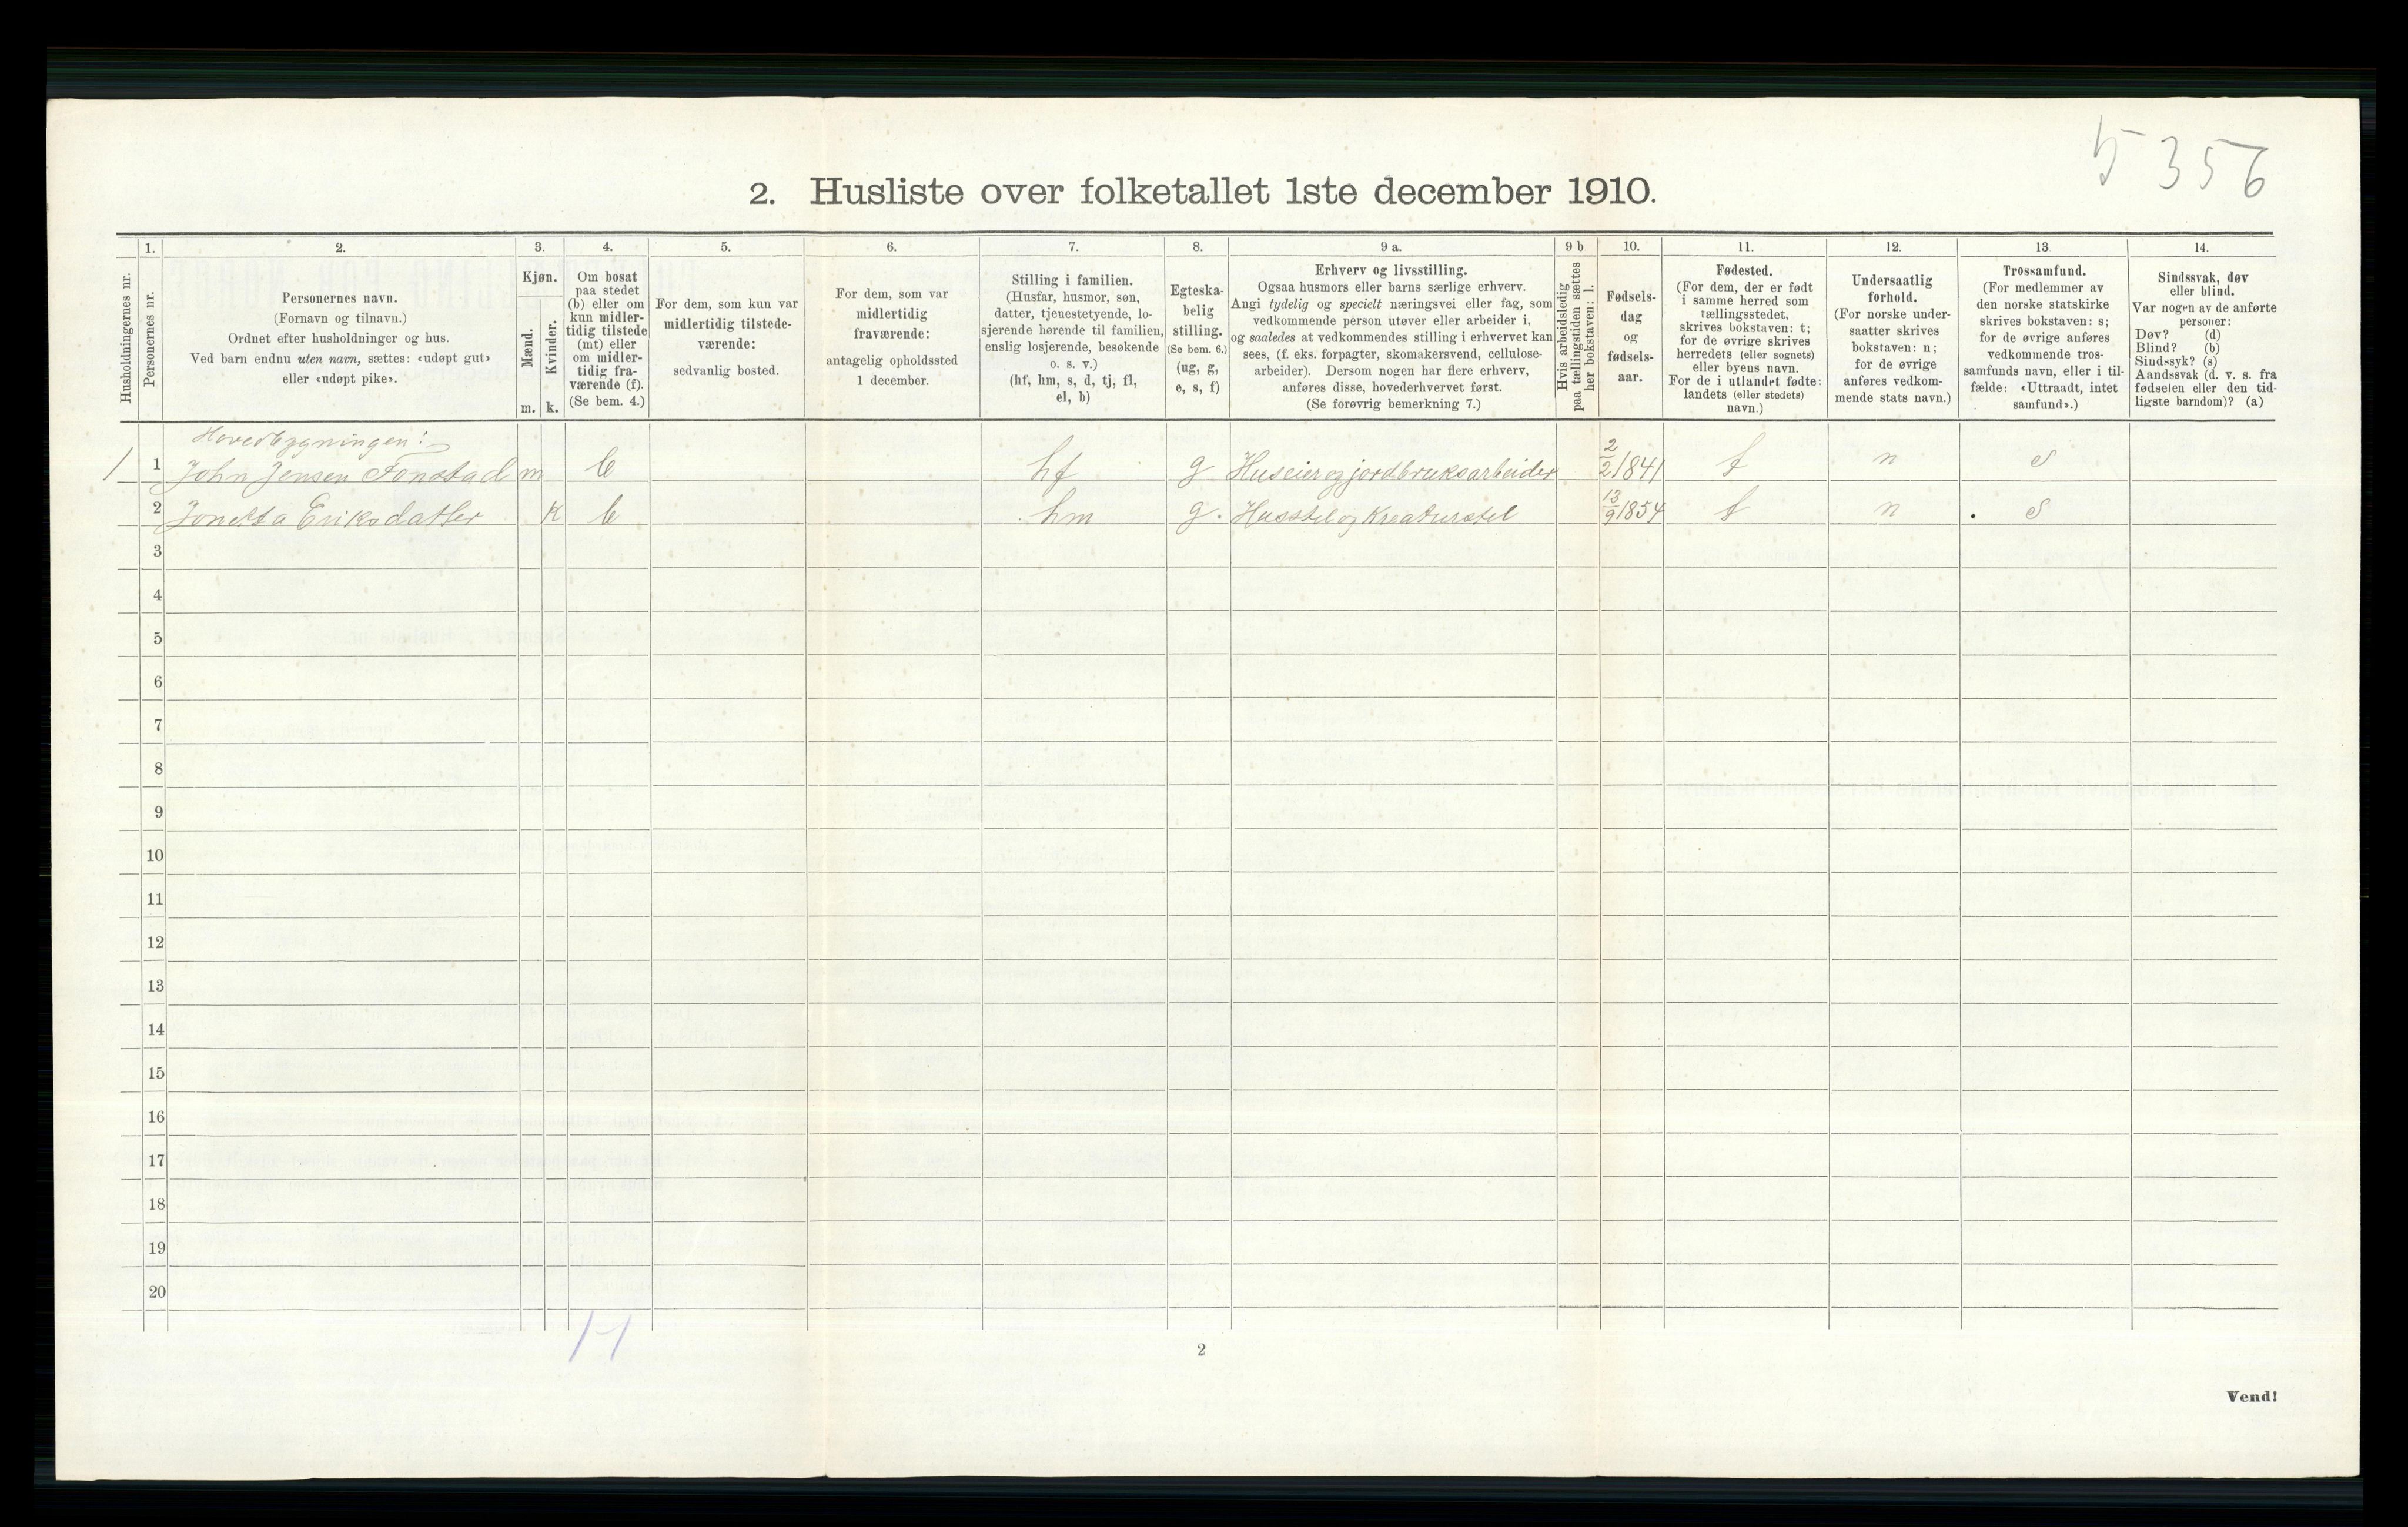 5 356
2. Husliste over folketallet 1ste december 1910.
Husholdningernes nr.
1.
Personernes nr.
2.
Personernes navn.
(Fornavn og tilnavn.)
Ordnet efter husholdninger og hus.
Ved barn endnu uten navn, sættes: «udøpt gut»
eller «udøpt pike».
3.
Kjøn.
Mænd.
Kvinder.
m. k.
4.
Om bosat
paa stedet
(b) eller om
kun midler-
tidig tilstede
(mt) eller
om midler-
tidig fra-
værende (f).
(Se bem. 4.)
5.
For dem, som kun var
midlertidig tilstede-
værende:
sedvanlig bosted.
6.
For dem, som var
midlertidig
fraværende:
antagelig opholdssted
1 december.
7.
Stilling i familien.
(Husfar, husmor, søn,
datter, tjenestetyende, lo-
sjerende hørende til familien,
enslig losjerende, besøkende
o. s. v.)
(hf, hm, s, d, tj, fl,
el, b)
8.
Egteska-
belig
stilling.
(Se bem. 6.)
(ug, g,
e, s, f)
9 a.
Erhverv og livsstilling.
Ogsaa husmors eller barns særlige erhverv.
Angi tydelig og specielt næringsvei eller fag, som
vedkommende person utøver eller arbeider i,
og saaledes at vedkommendes stilling i erhvervet kan
sees, (f. eks. forpagter, skomakersvend, cellulose-
arbeider). Dersom nogen har flere erhverv,
anføres disse, hovederhvervet først.
(Se forøvrig bemerkning 7.)
9 b
Hvis arbeidsledig
paa tællingstiden sættes
her bokstaven: l.
10.
Fødsels-
dag
og
fødsels-
aar.
11.
Fødested.
(For dem, der er født
i samme herred som
tællingsstedet,
skrives bokstaven: t;
for de øvrige skrives
herredets (eller sognets)
eller byens navn.
For de i utlandet fødte:
landets (eller stedets)
navn.)
12.
Undersaatlig
forhold.
(For norske under-
saatter skrives
bokstaven: n;
for de øvrige
anføres vedkom-
mende stats navn.)
13
Trossamfund.
(For medlemmer av
den norske statskirke
skrives bokstaven: s;
for de øvrige anføres
vedkommende tros-
samfunds navn, eller i til-
fælde: «Uttraadt, intet
samfund».)
14.
Sindssvak, døv
eller blind.
Var nogen av de anførte
personer:
Døv? (d)
Blind? (b)
Sindssyk? (s)
Aandssvak (d. v. s. fra
fødselen eller den tid-
ligste barndom)? (a)
Hovedbygningen:
1 1 John Jensen Fonstad m b hf g Huseier og jordbruksarbeider 2/2 1841 t n s
2 Jonetta Eriksdatter k b hm g. Husstel og Kreaturstel 13/9 1854 t n . s
3
4
5
6
7
8
9
10
11
12
13
14
15
16
17
18
19
20
1-1
2
Vend!